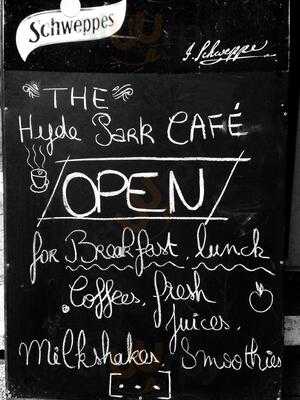 Schweppes
J. Schweppe
THE
Hyde Park CAFÉ
OPEN
for Breakfast, lunch
Coffees, fresh
juices,
Milkshakes, Smoothies
...